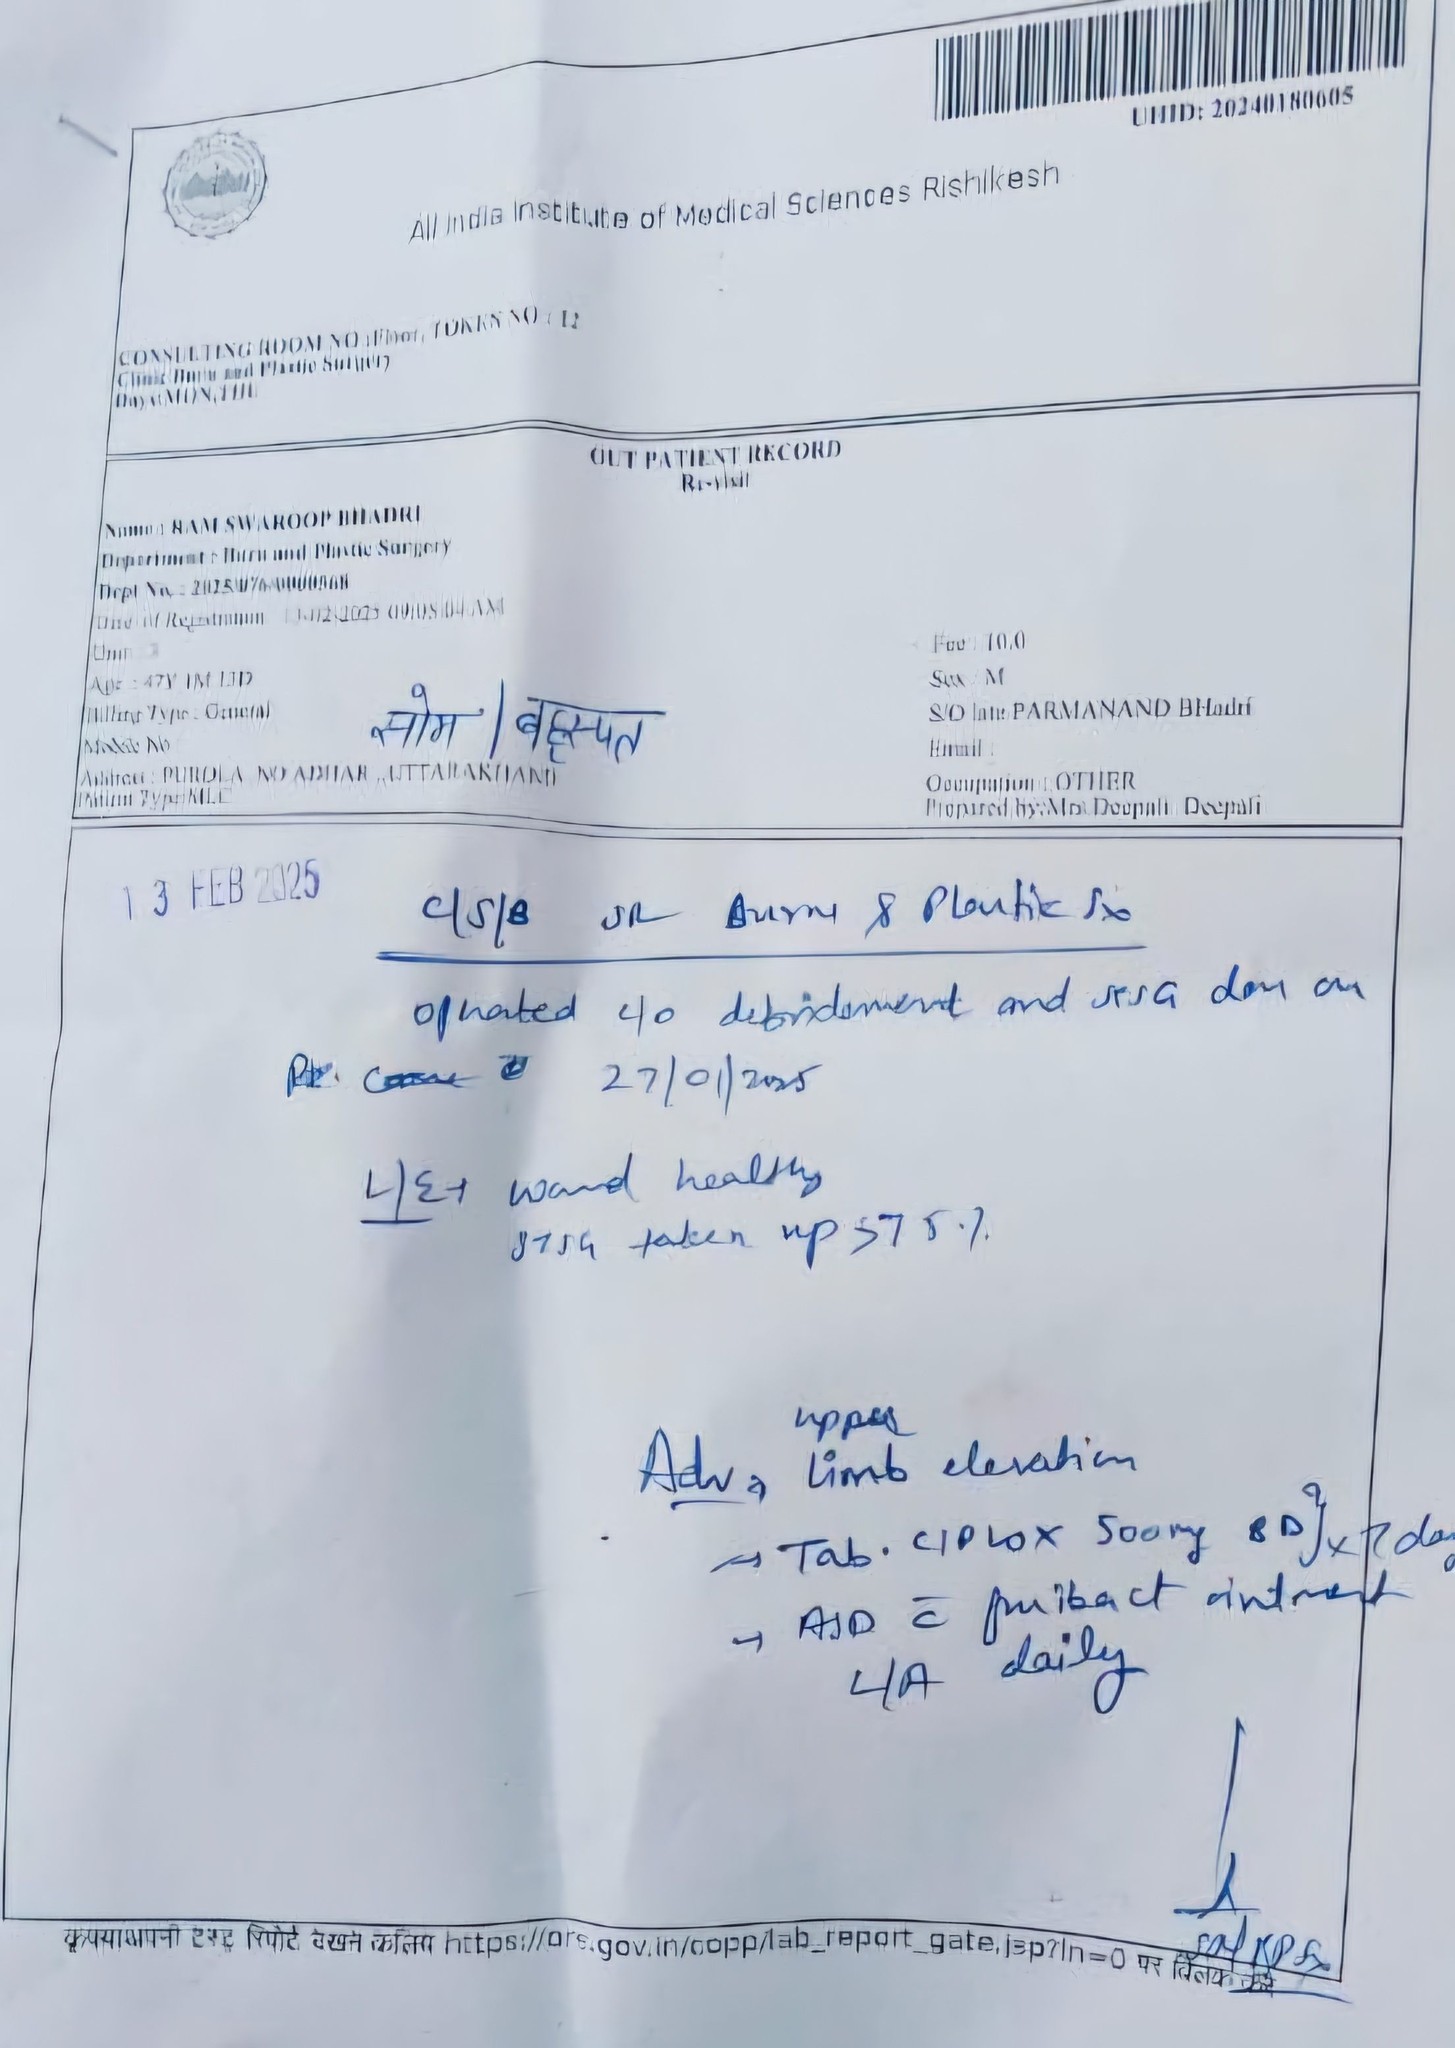 UHID: 20240180605
All India Institute of Medical Sciences Rishikesh
CONSULTING ROOM NO :Floor, TOKEN NO : 12
Clinic Burn and Plastic Surgery
Days:MON,THU
OUT PATIENT RECORD
Re-visit
Name : RAM SWAROOP BHADRI
Department : Burn and Plastic Surgery
Dept No. :
Date of Registration 13/02/2025 09:08:04 AM
Unit
Fee 10.0
Age : 47Y 1M 13D
Sex M
Billing Type : General
सोम / बृहस्पत
S/O late PARMANAND BHadri
Mobile No
Email :
Address : PUROLA UTTARAKHAND
Occupation : OTHER
Patient Type:
Prepared by:Mrs Deepali Deepali
13 FEB 2025
C/S/B SR Burns & Plastic Sx
operated c/o debridement and STSG done on
27/01/2025
L/E wound healthy
STSG taken up >75%
upper
Adv limb elevation
→ Tab. CIPLOX 500mg BD x 7
→ ASD c̅ ointment
L/A daily
कृपया अपनी रिपोर्ट देखने के लिए https://ors.gov.in/copp/lab_report_gate.jsp?ln=0 पर क्लिक करें